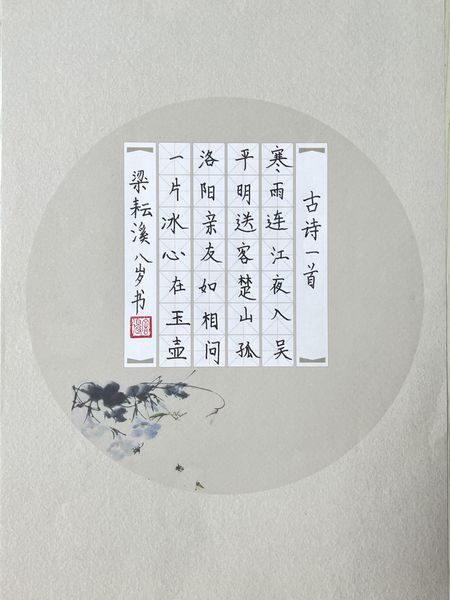 古诗一首
寒雨连江夜入吴
平明送客楚山孤
洛阳亲友如相问
一片冰心在玉壶
梁耘溪八岁书